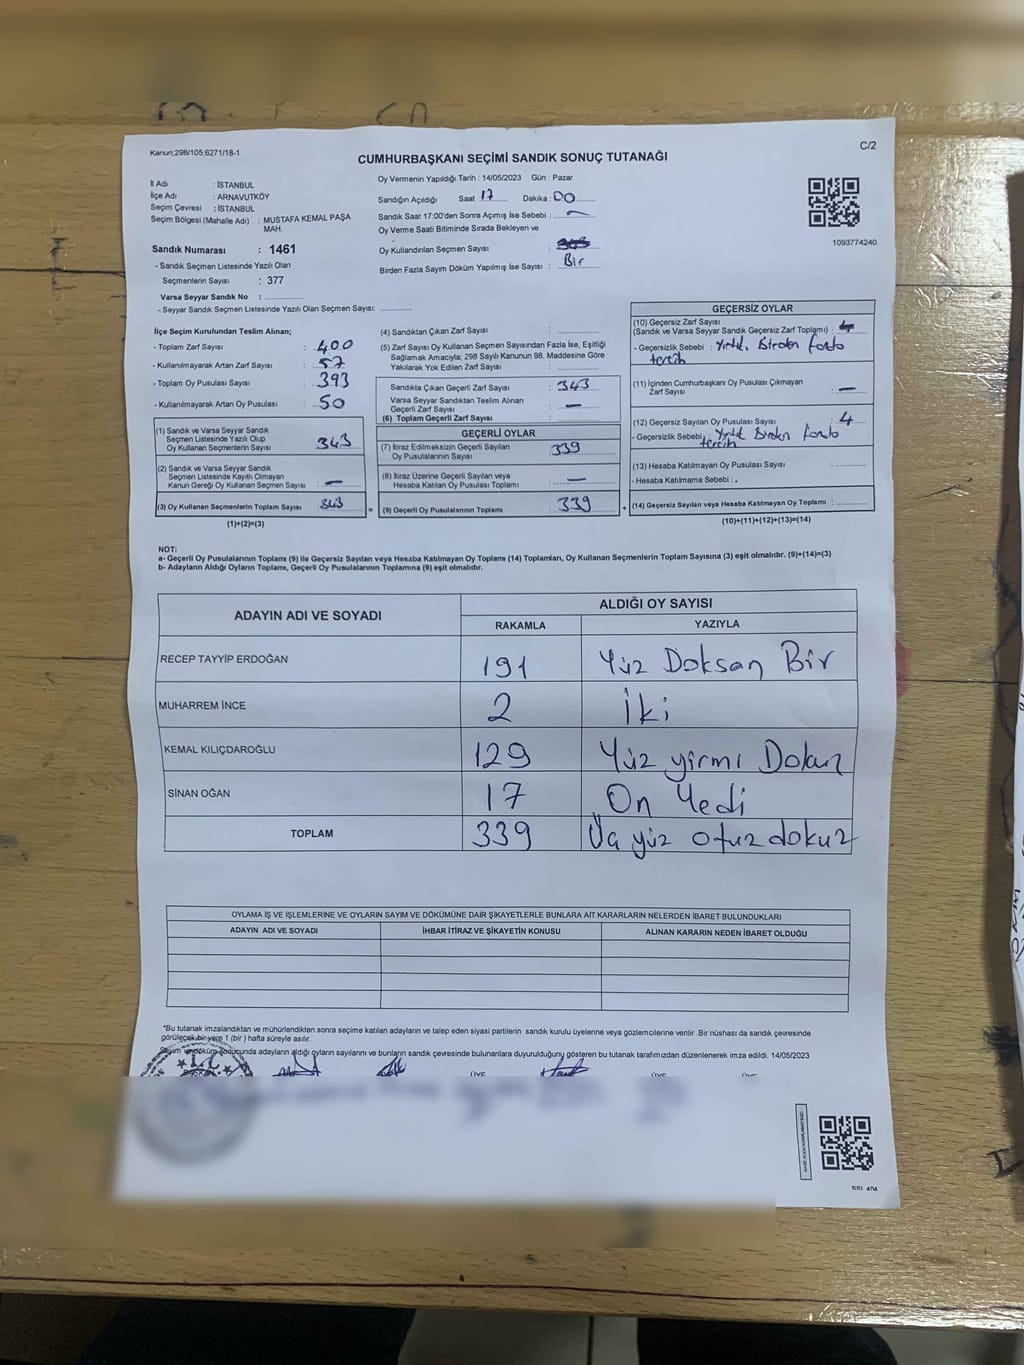 Kanun;298/105;6271/18-1
C/2
CUMHURBAŞKANI SEÇİMİ SANDIK SONUÇ TUTANAĞI
İl Adı : İSTANBUL
İlçe Adı : ARNAVUTKÖY
Seçim Çevresi : İSTANBUL
Seçim Bölgesi (Mahalle Adı) : MUSTAFA KEMAL PAŞA MAH.
Sandık Numarası : 1461
- Sandık Seçmen Listesinde Yazılı Olan
Seçmenlerin Sayısı : 377
Varsa Seyyar Sandık No :
- Seyyar Sandık Seçmen Listesinde Yazılı Olan Seçmen Sayısı:
Oy Vermenin Yapıldığı Tarih : 14/05/2023 Gün : Pazar
Sandığın Açıldığı Saat 17 Dakika : 00
Sandık Saat 17:00'den Sonra Açımış İse Sebebi : -
Oy Verme Saati Bitiminde Sırada Bekleyen ve
Oy Kullandırılan Seçmen Sayısı :
Birden Fazla Sayım Döküm Yapılmış İse Sayısı : Bir
1093774240
İlçe Seçim Kurulundan Teslim Alınan;
- Toplam Zarf Sayısı : 400
- Kullanılmayarak Artan Zarf Sayısı : 57
- Toplam Oy Pusulası Sayısı : 393
- Kullanılmayarak Artan Oy Pusulası : 50
(1) Sandık ve Varsa Seyyar Sandık
Seçmen Listesinde Yazılı Olup
Oy Kullanan Seçmenlerin Sayısı : 343
(2) Sandık ve Varsa Seyyar Sandık
Seçmen Listesinde Kayıtlı Olmayan
Kanun Gereği Oy Kullanan Seçmen Sayısı : -
(3) Oy Kullanan Seçmenlerin Toplam Sayısı : 343 =
(1)+(2)=(3)
(4) Sandıktan Çıkan Zarf Sayısı :
(5) Zarf Sayısı Oy Kullanan Seçmen Sayısından Fazla İse, Eşitliği
Sağlamak Amacıyla; 298 Sayılı Kanunun 98. Maddesine Göre
Yakılarak Yok Edilen Zarf Sayısı :
Sandıkta Çıkan Geçerli Zarf Sayısı : 343
Varsa Seyyar Sandıktan Teslim Alınan
Geçerli Zarf Sayısı : -
(6) Toplam Geçerli Zarf Sayısı :
GEÇERLİ OYLAR
(7) İtiraz Edilmeksizin Geçerli Sayılan
Oy Pusulalarının Sayısı : 339
(8) İtiraz Üzerine Geçerli Sayılan veya
Hesaba Katılan Oy Pusulası Toplamı : -
(9) Geçerli Oy Pusulalarının Toplamı : 339 +
GEÇERSİZ OYLAR
(10) Geçersiz Zarf Sayısı
(Sandık ve Varsa Seyyar Sandık Geçersiz Zarf Toplamı) :
- Geçersizlik Sebebi : Yırtık, Birden fazla
tercih
(11) İçinden Cumhurbaşkanı Oy Pusulası Çıkmayan
Zarf Sayısı : -
(12) Geçersiz Sayılan Oy Pusulası Sayısı : 4
- Geçersizlik Sebebi : Yırtık Birden fazla
tercih
(13) Hesaba Katılmayan Oy Pusulası Sayısı :
- Hesaba Katılmama Sebebi :
(14) Geçersiz Sayılan veya Hesaba Katılmayan Oy Toplamı :
(10)+(11)+(12)+(13)=(14)
NOT:
a- Geçerli Oy Pusulalarının Toplamı (9) ile Geçersiz Sayılan veya Hesaba Katılmayan Oy Toplamı (14) Toplamları, Oy Kullanan Seçmenlerin Toplam Sayısına (3) eşit olmalıdır. (9)+(14)=(3)
b- Adayların Aldığı Oyların Toplamı, Geçerli Oy Pusulalarının Toplamına (9) eşit olmalıdır.
ADAYIN ADI VE SOYADI ALDIĞI OY SAYISI
RAKAMLA YAZIYLA
RECEP TAYYİP ERDOĞAN 191 Yüz Doksan Bir
MUHARREM İNCE 2 İki
KEMAL KILIÇDAROĞLU 129 Yüz yirmi Dokuz
SİNAN OĞAN 17 On Yedi
TOPLAM 339 Üç yüz otuz dokuz
OYLAMA İŞ VE İŞLEMLERİNE VE OYLARIN SAYIM VE DÖKÜMÜNE DAİR ŞİKAYETLERLE BUNLARA AİT KARARLARIN NELERDEN İBARET BULUNDUKLARI
ADAYIN ADI VE SOYADI İHBAR İTİRAZ VE ŞİKAYETİN KONUSU ALINAN KARARIN NEDEN İBARET OLDUĞU
*Bu tutanak imzalandıktan ve mühürlendikten sonra seçime katılan adayların ve talep eden siyasi partilerin sandık kurulu üyelerine veya gözlemcilerine verilir. Bir nüshası da sandık çevresinde
görülecek bir yere 1 (bir) hafta süreyle asılır.
Sayım ve döküm sonucunda adayların aldığı oyların sayılarını ve bunların sandık çevresinde bulunanlara duyurulduğunu gösteren bu tutanak tarafımızdan düzenlenerek imza edildi. 14/05/2023
BAŞKAN ÜYE ÜYE ÜYE